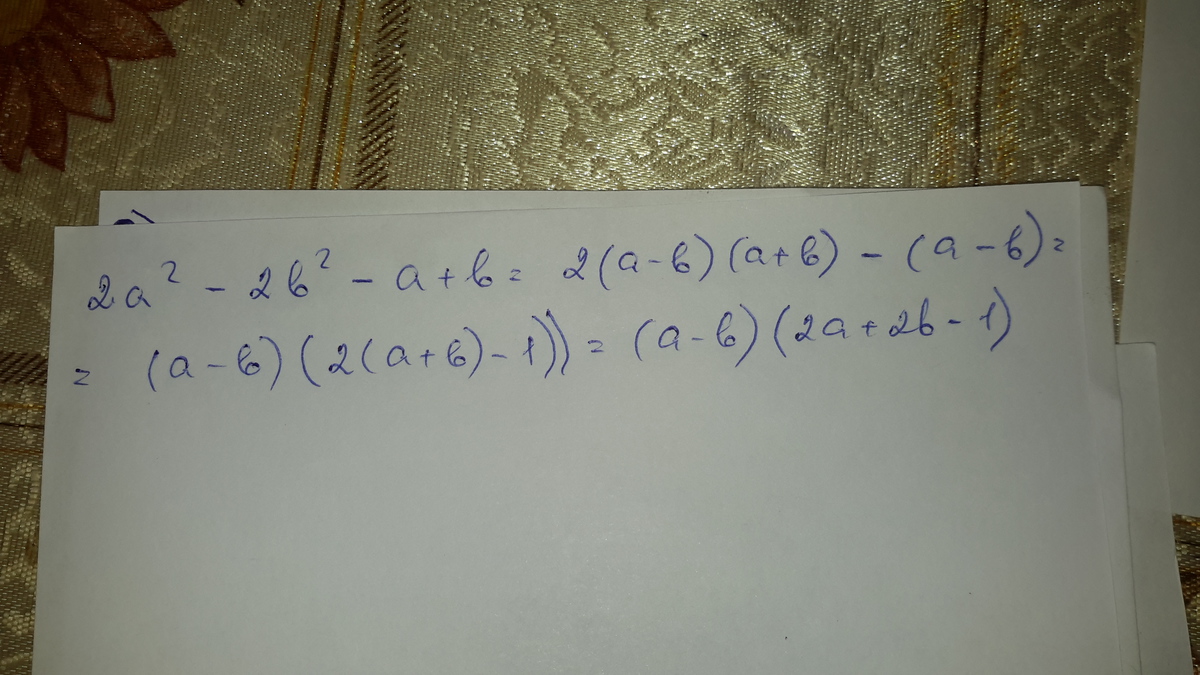 2a² - 2b² - a + b = 2(a-b)(a+b) - (a-b) =
= (a-b)(2(a+b)-1)) = (a-b)(2a+2b-1)